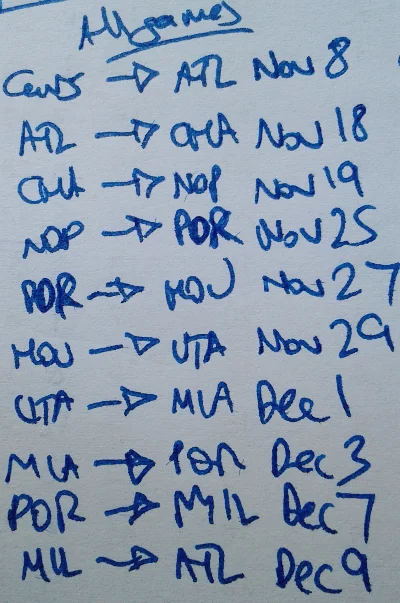 All games
CAVS → ATL Nov 8
ATL → CHA Nov 18
CHA → NOP Nov 19
NOP → POR Nov 25
POR → HOU Nov 27
HOU → UTA Nov 29
UTA → MIA Dec 1
MIA → TOR Dec 3
POR → MIL Dec 7
MIL → ATL Dec 9